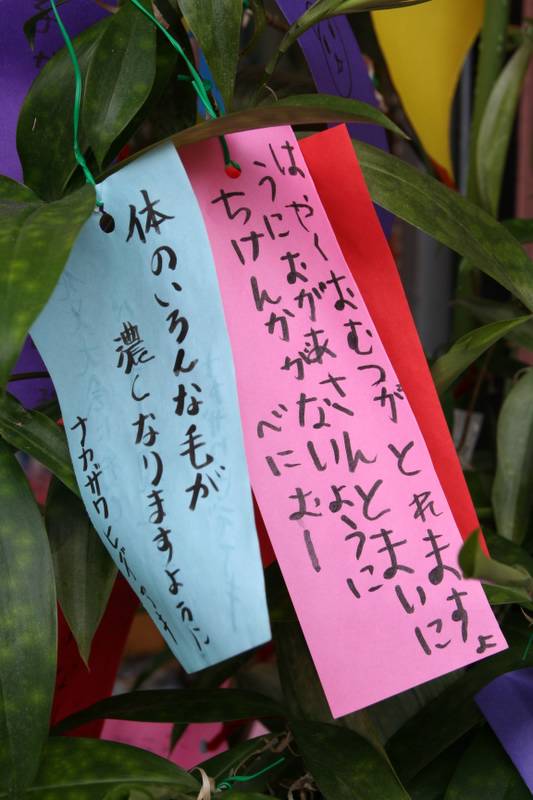 はやくおむつがとれますよ
うにおがあさんとまいに
ちけんかがないように
べにむー
体のいろんな毛が
濃くなりますように
ナカザワ